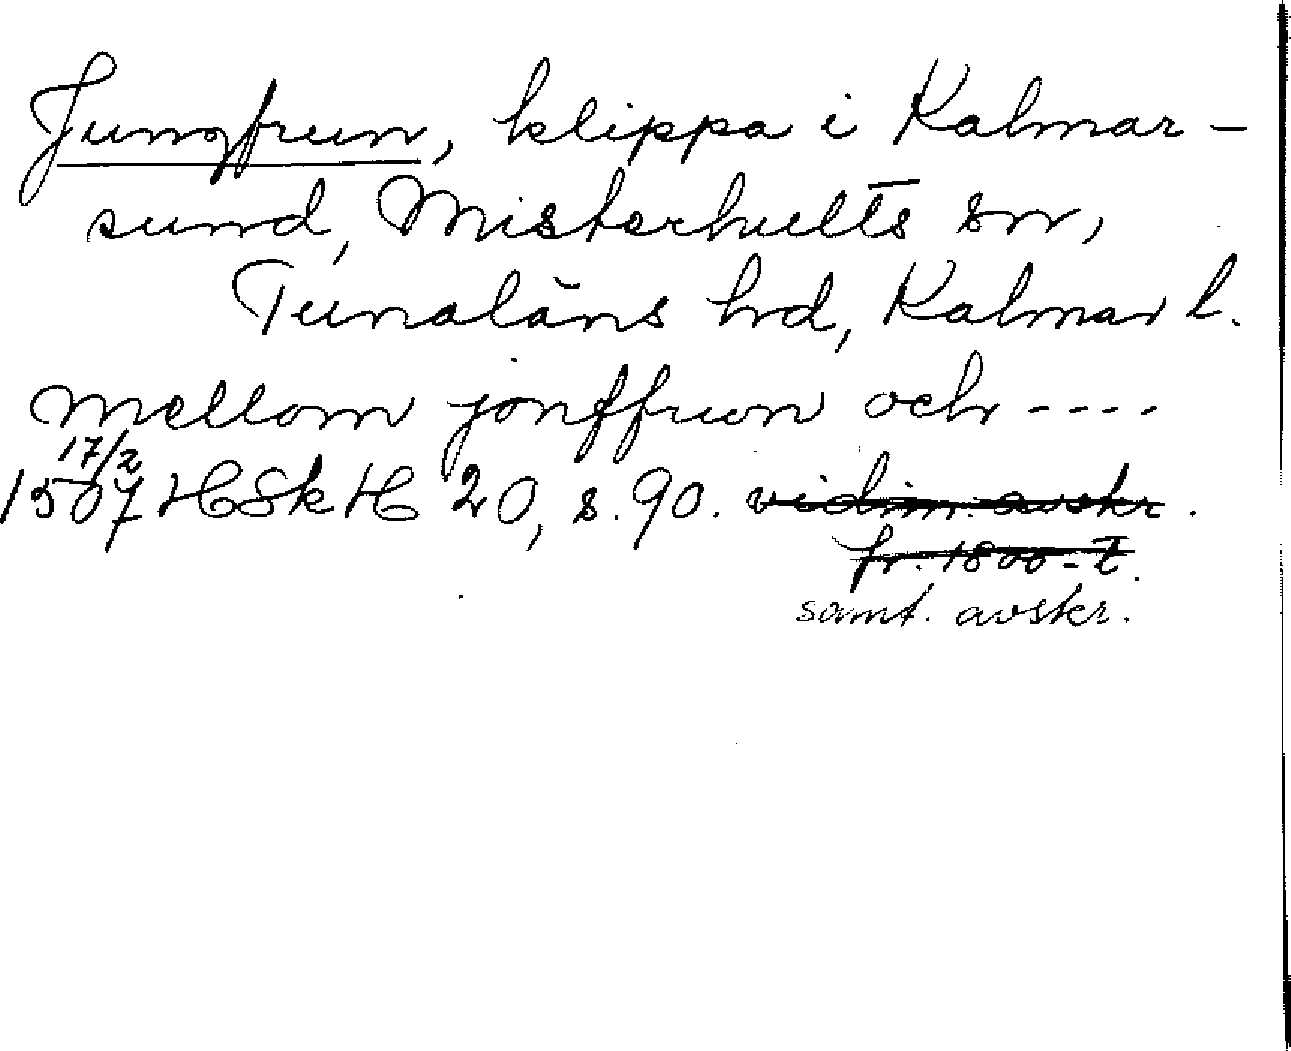 Jungfrun, klippa i Kalmar-
sund, Misterhults sn,
Tunaläns hd, Kalmar l.
Mellom jonffrwn och ----
17/2
1507 HSkH 20, s. 90. vidim. avskr.
fr. 1800-t.
samt. avskr.